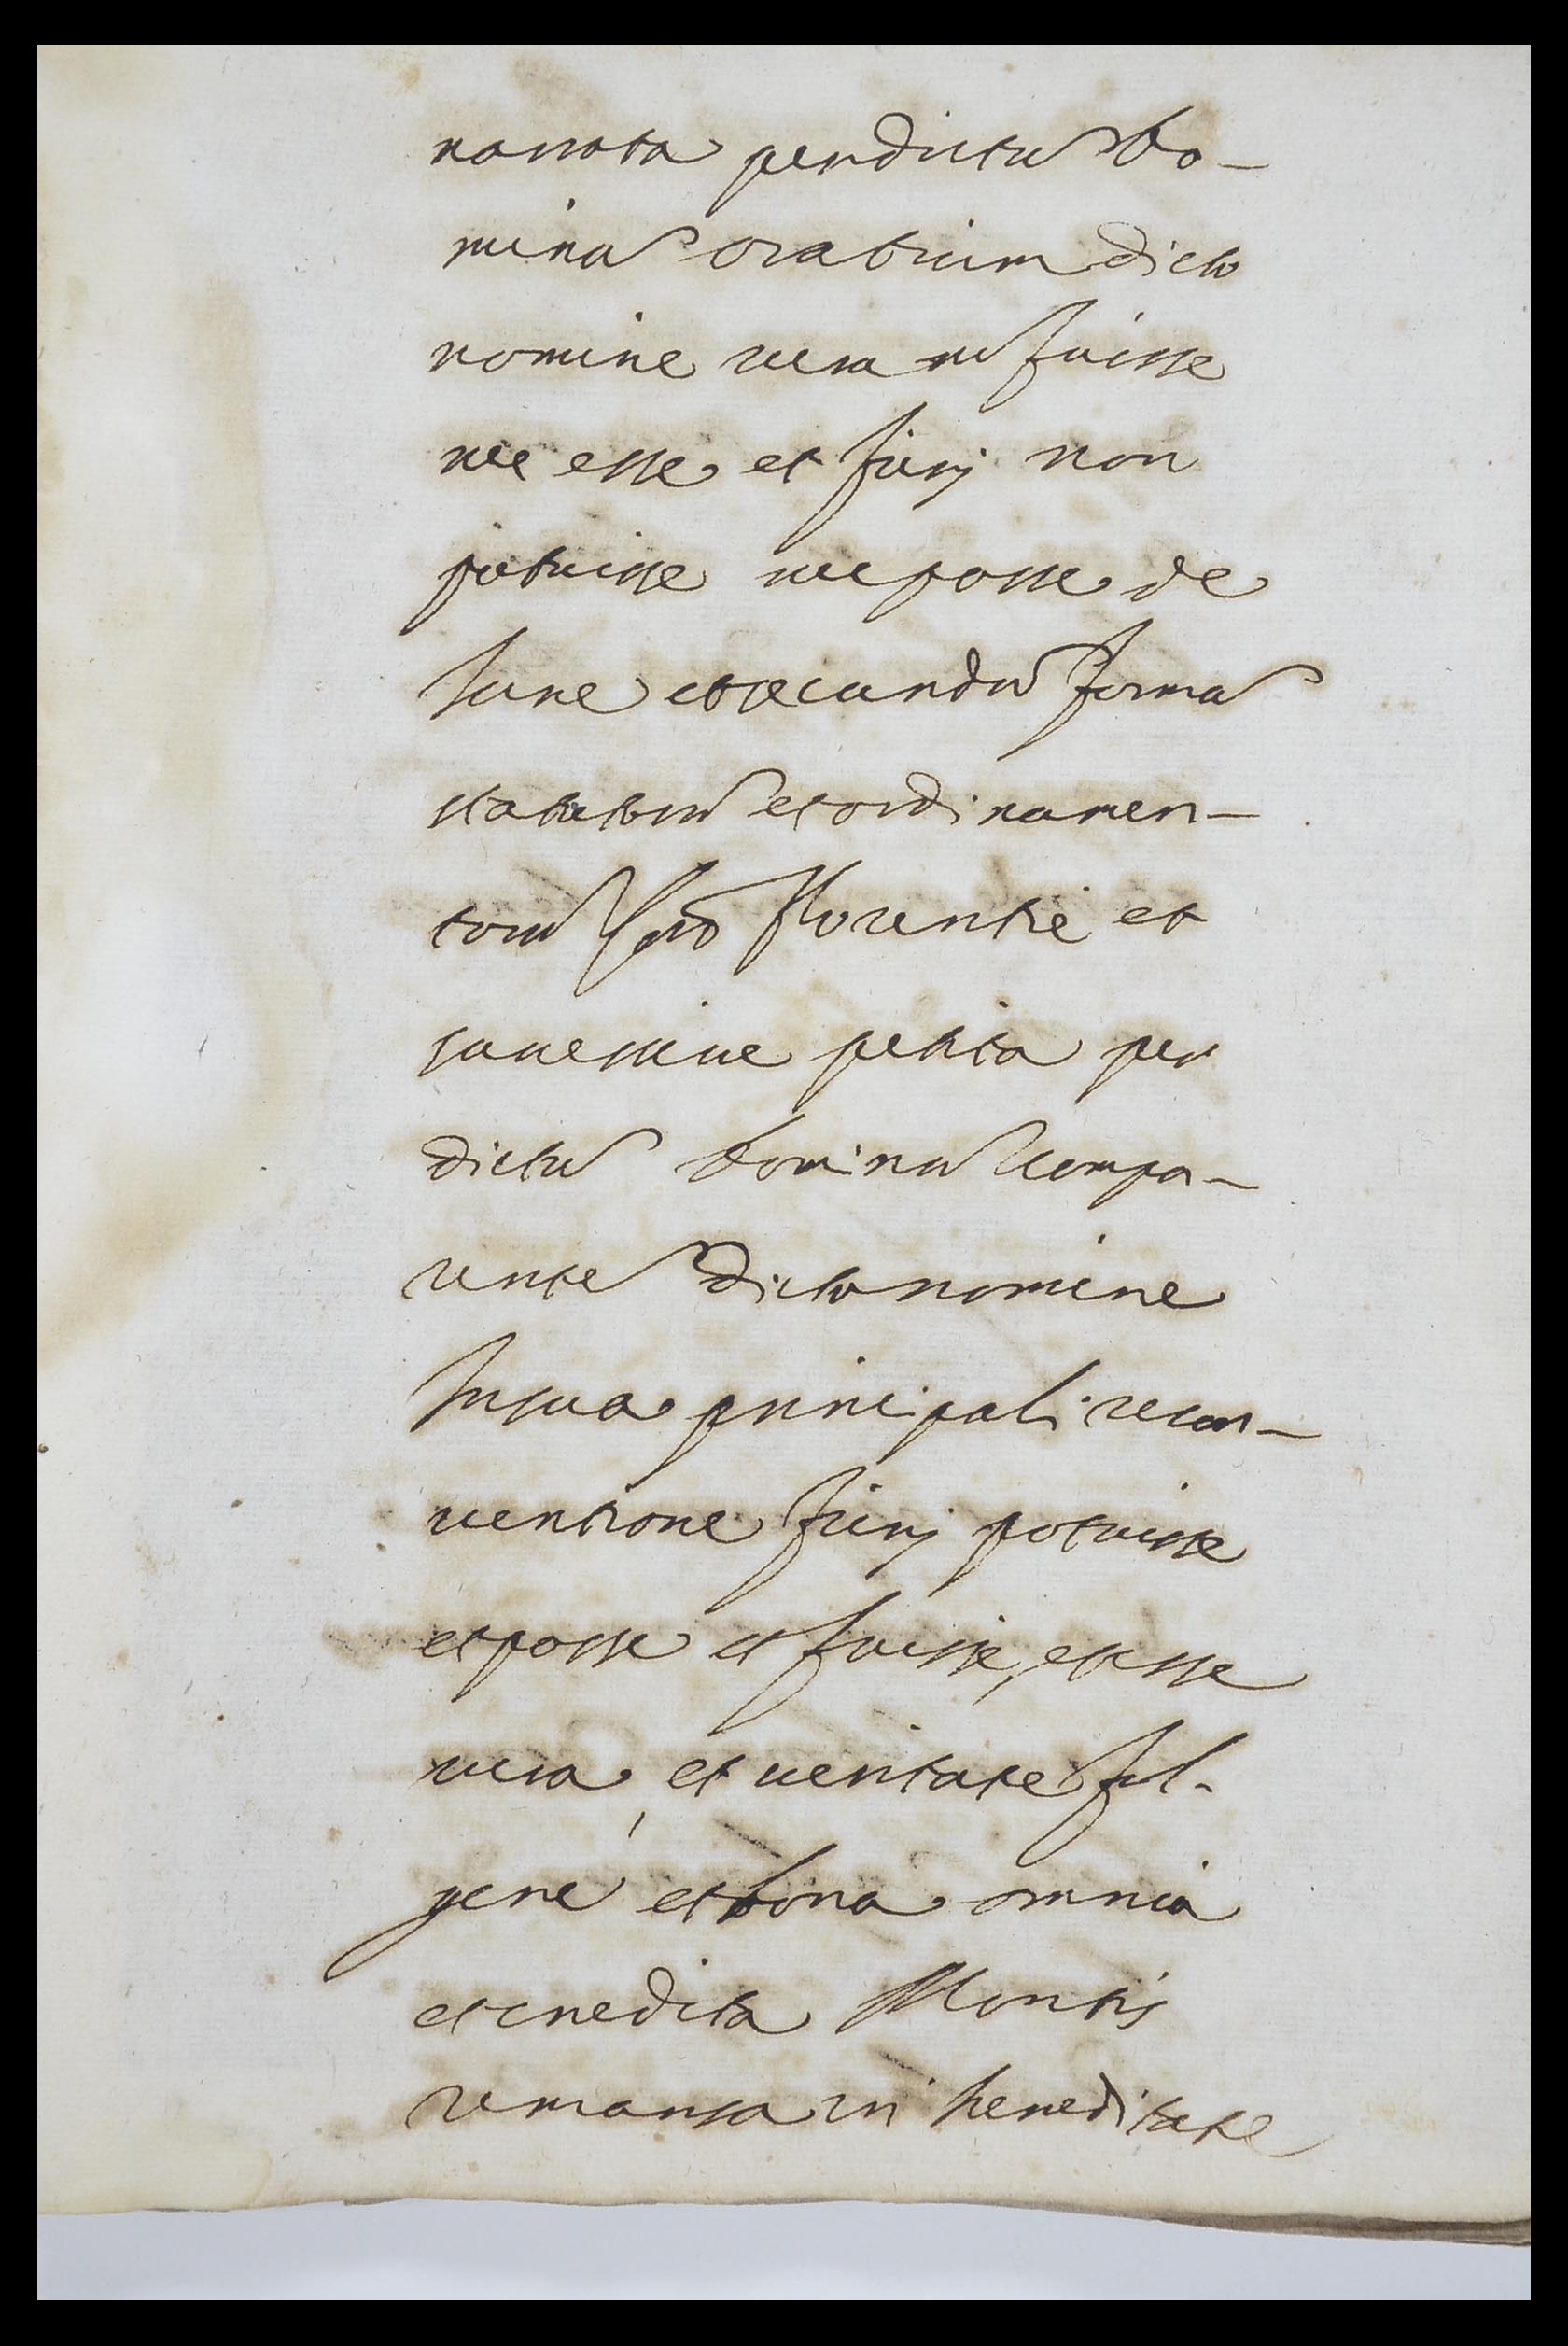 narrata per dictu Do-
mina oratricem dicto
nomine vera no fuisse
nec esse et fieri non
potuisse nec posse de
Iure et secundu forma
statutoru et ordinamen-
toru Florentie et
successive petita per
dictu dominu Compa-
rente dicto nomine
In sua principali recon-
ventione fieri potuisse
et posse et fuisse, et esse
vera, et veritate ful-
gere et bona omnia
et credita Montis
remansa in hereditate